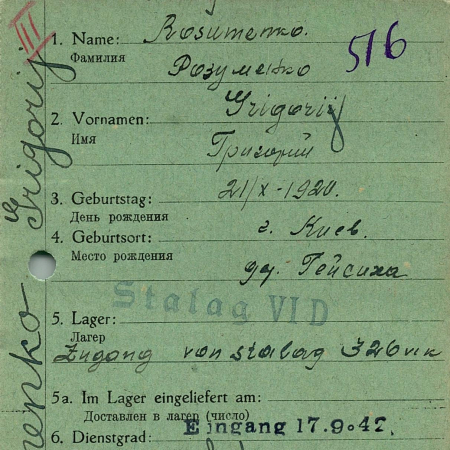 III
1. Name: Rosumenko.
Фамилия Розуменко
576
2. Vornamen: Grigorij
Имя Григорий
3. Geburtstag: 21/X-1920.
День рождения
4. Geburtsort: г. Киев.
Место рождения
др. Гейсиха
Stalag VI D
5. Lager:
Лагерь
Zugang von Stalag 326 VI K
5a. Im Lager eingeliefert am:
Доставлен в лагерь (число)
Eingang 17.9.42.
6. Dienstgrad:
enko Grigorij